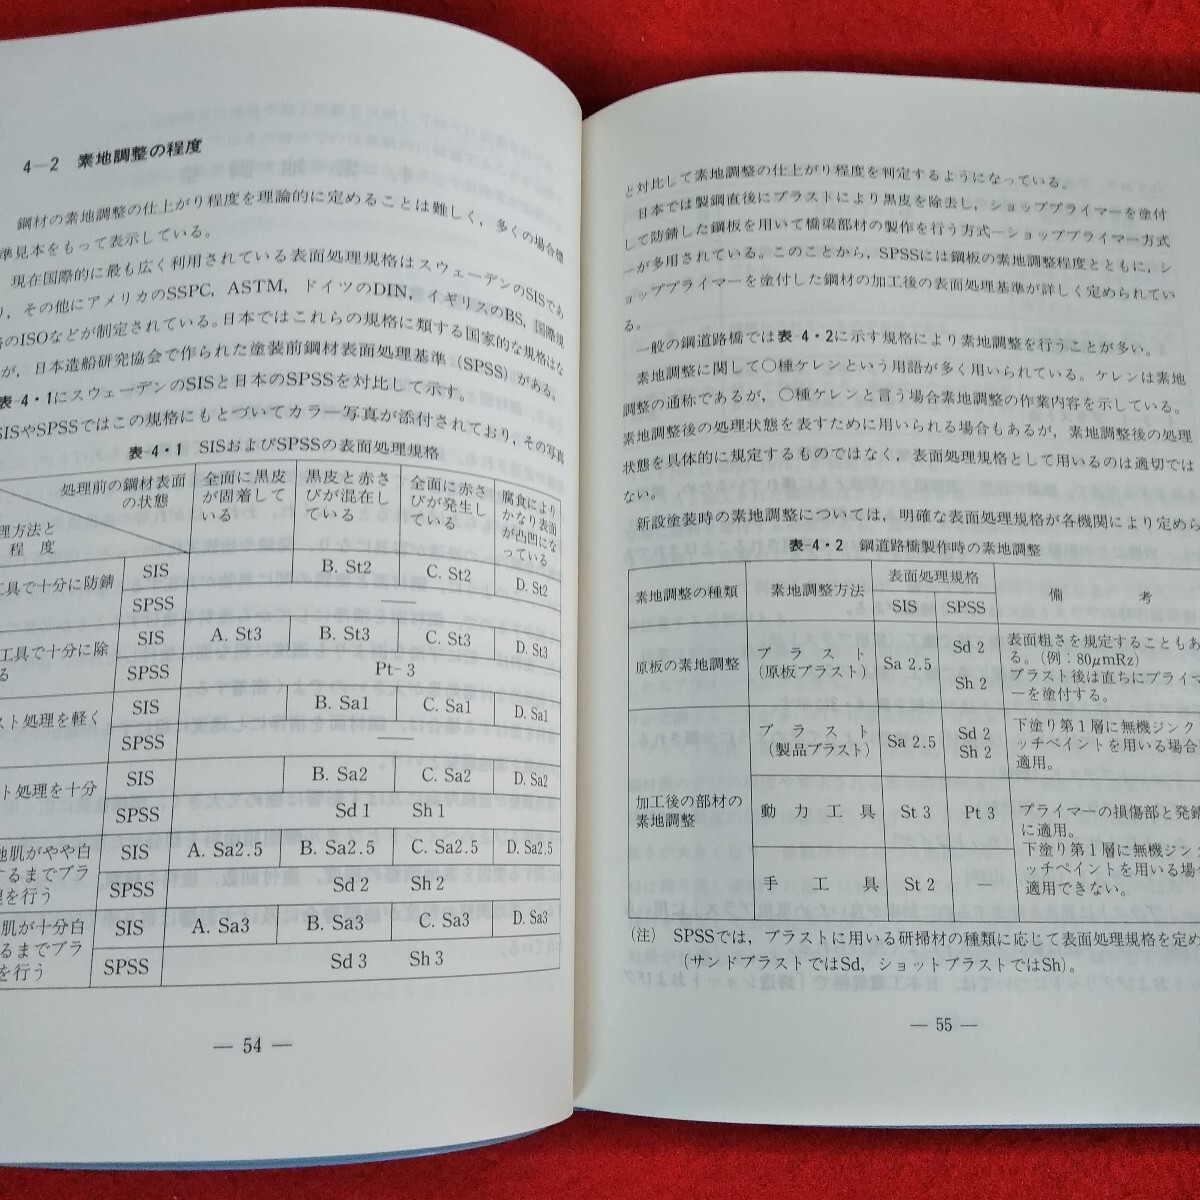 4—2　素地調整の程度
鋼材の素地調整の仕上がり程度を理論的に定めることは難しく，多くの場合標
準見本をもって表示している。
現在国際的に最も広く利用されている表面処理規格はスウェーデンのSISであ
り，その他にアメリカのSSPC，ASTM，ドイツのDIN，イギリスのBS，国際規
格のISOなどが制定されている。日本ではこれらの規格に類する国家的な規格はな
が，日本造船研究協会で作られた塗装前鋼材表面処理基準（SPSS）がある。
表-4・1にスウェーデンのSISと日本のSPSSを対比して示す。
SISやSPSSではこの規格にもとづいてカラー写真が添付されており，その写真
表-4・1　SISおよびSPSSの表面処理規格
処理前の鋼材表面の状態
理方法と
程　度
全面に黒皮が固着している
黒皮と赤さびが混在している
全面に赤さびが発生している
腐食によりかなり表面が凸凹になっている
工具で十分に防錆
SIS　B. St2　C. St2　D. St2
SPSS　—
工具で十分に除
る
SIS　A. St3　B. St3　C. St3　D. St3
SPSS　Pt- 3
スト処理を軽く
SIS　B. Sa1　C. Sa1　D. Sa1
SPSS
ト処理を十分
SIS　B. Sa2　C. Sa2　D. Sa2
SPSS　Sd 1　Sh 1
地肌がやや白
するまでブラ
理を行う
SIS　A. Sa2.5　B. Sa2.5　C. Sa2.5　D. Sa2.5
SPSS　Sd 2　Sh 2
肌が十分白
るまでブラ
を行う
SIS　A. Sa3　B. Sa3　C. Sa3　D. Sa3
SPSS　Sd 3　Sh 3
— 54 —
と対比して素地調整の仕上がり程度を判定するようになっている。
日本では製鋼直後にブラストにより黒皮を除去し，ショッププライマーを塗付
して防錆した鋼板を用いて橋梁部材の製作を行う方式—ショッププライマー方式
—が多用されている。このことから，SPSSには鋼板の素地調整程度とともに，シ
ョッププライマーを塗付した鋼材の加工後の表面処理基準が詳しく定められてい
る。
一般の鋼道路橋では表-4・2に示す規格により素地調整を行うことが多い。
素地調整に関して〇種ケレンという用語が多く用いられている。ケレンは素地
調整の通称であるが，〇種ケレンと言う場合素地調整の作業内容を示している。
素地調整後の処理状態を表すために用いられる場合もあるが，素地調整後の処理
状態を具体的に規定するものではなく，表面処理規格として用いるのは適切では
ない。
新設塗装時の素地調整については，明確な表面処理規格が各機関により定めら
表-4・2　鋼道路橋製作時の素地調整
素地調整の種類　素地調整方法　表面処理規格　備　考
SIS　SPSS
原板の素地調整
ブラスト
（原板ブラスト）
Sa 2.5
Sd 2
Sh 2
表面粗さを規定することもあ
る。（例：80μmRz）
ブラスト後は直ちにプライマ
ーを塗付する。
加工後の部材の
素地調整
ブラスト
（製品ブラスト）
Sa 2.5
Sd 2
Sh 2
下塗り第1層に無機ジンク
ッチペイントを用いる場合
適用。
動力工具　St 3　Pt 3
プライマーの損傷部と発錆
に適用。
手工具　St 2　—
下塗り第1層に無機ジンク
ッチペイントを用いる場
適用できない。
（注）　SPSSでは，ブラストに用いる研掃材の種類に応じて表面処理規格を定め
（サンドブラストではSd，ショットブラストではSh）。
— 55 —